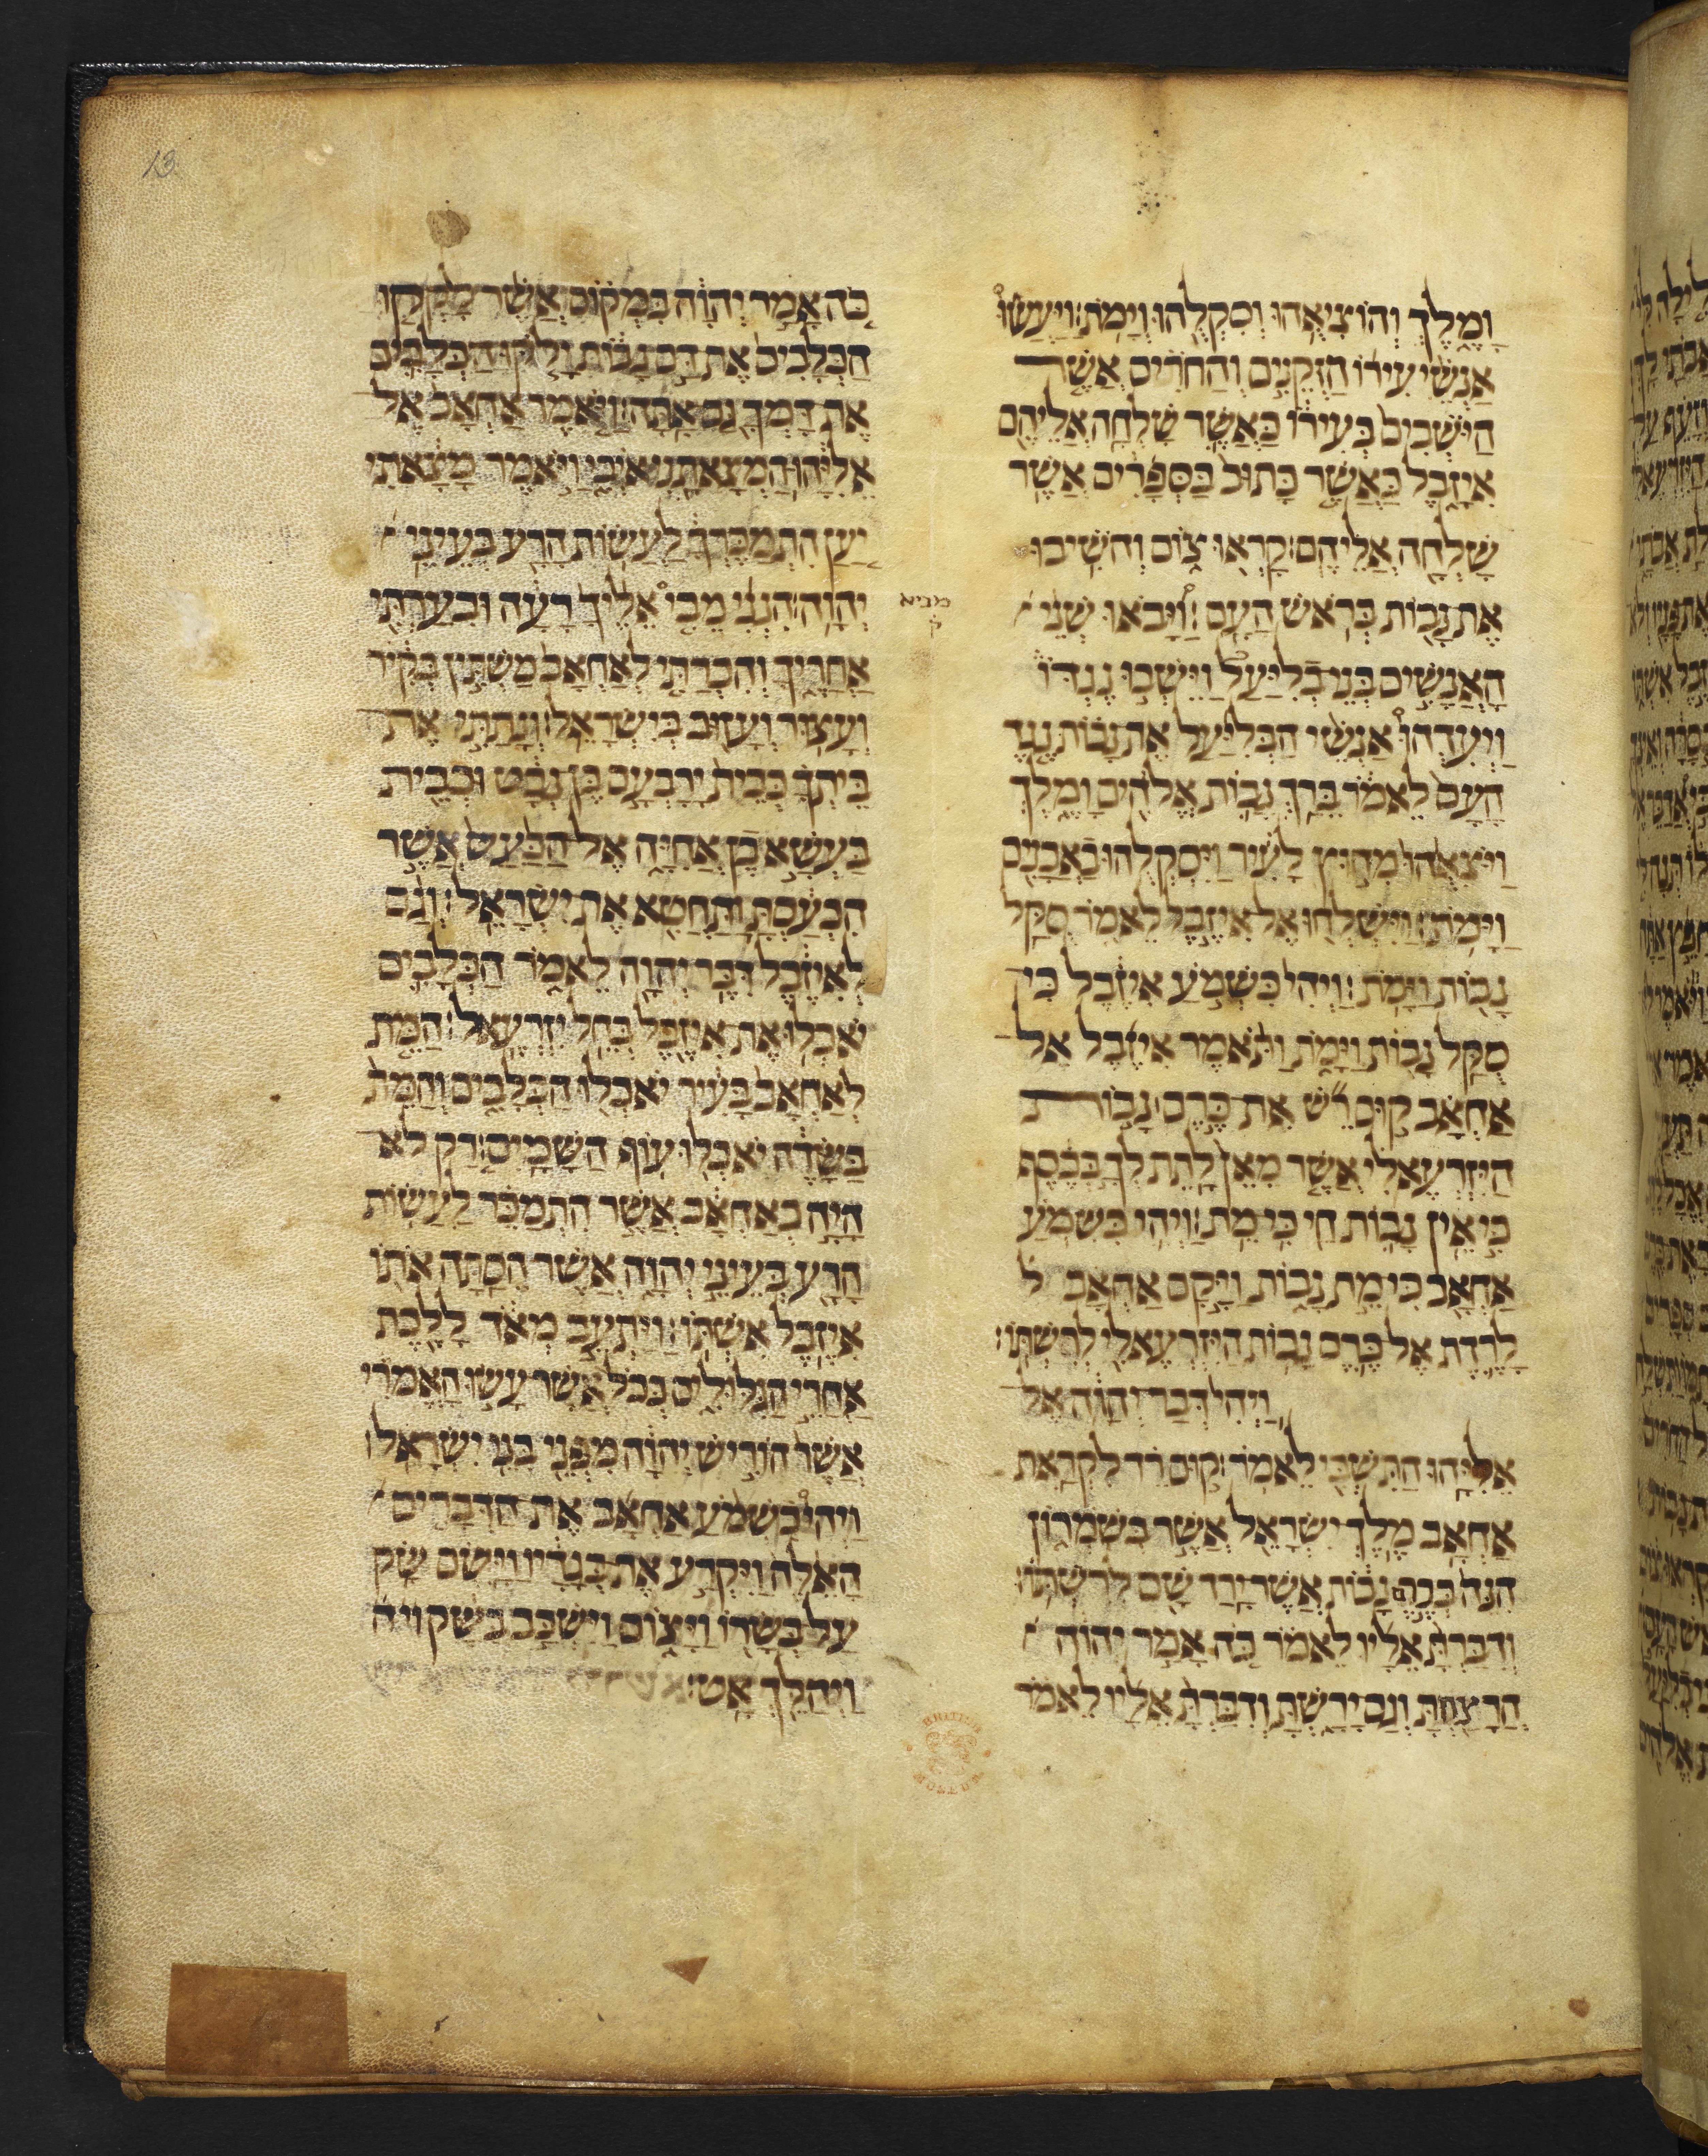 וָמֶ֑לֶךְ וְהוֹצִיאֻ֥הוּ וְסִקְלֻ֖הוּ וְיָמֹֽת׃ וַיַּעֲשׂוּ֩
אַנְשֵׁ֨י עִיר֜וֹ הַזְּקֵנִ֣ים וְהַחֹרִ֗ים אֲשֶׁ֤ר
הַיֹּֽשְׁבִים֙ בְּעִיר֔וֹ כַּאֲשֶׁ֛ר שָׁלְחָ֥ה אֲלֵיהֶ֖ם
אִיזָ֑בֶל כַּאֲשֶׁ֤ר כָּתוּב֙ בַּסְּפָרִ֔ים אֲשֶׁ֥ר
שָׁלְחָ֖ה אֲלֵיהֶֽם׃ קָרְא֖וּ צ֑וֹם וְהֹשִׁ֥יבוּ
אֶת נָב֖וֹת בְּרֹ֥אשׁ הָעָֽם׃ וַ֠יָּבֹאוּ שְׁנֵ֨י
הָאֲנָשִׁ֥ים בְּנֵֽי בְלִיַּעַל֮ וַיֵּשְׁב֣וּ נֶגְדּוֹ֒
וַיְעִדֻהוּ֩ אַנְשֵׁ֨י הַבְּלִיַּ֜עַל אֶת נָב֗וֹת נֶ֤גֶד
הָעָם֙ לֵאמֹ֔ר בֵּרַ֥ךְ נָב֛וֹת אֱלֹהִ֖ים וָמֶ֑לֶךְ
וַיֹּצִאֻ֙הוּ֙ מִח֣וּץ לָעִ֔יר וַיִּסְקְלֻ֥הוּ בָאֲבָנִ֖ים
וַיָּמֹֽת׃ וַֽיִּשְׁלְח֖וּ אֶל אִיזֶ֣בֶל לֵאמֹ֑ר סֻקַּ֥ל
נָב֖וֹת וַיָּמֹֽת׃ וַֽיְהִי֙ כִּשְׁמֹ֣עַ אִיזֶ֔בֶל כִּֽי
סֻקַּ֥ל נָב֖וֹת וַיָּמֹ֑ת וַתֹּ֨אמֶר אִיזֶ֜בֶל אֶל
אַחְאָ֗ב ק֣וּם רֵ֞שׁ אֶת כֶּ֣רֶם נָב֣וֹת
הַיִּזְרְעֵאלִ֗י אֲשֶׁ֤ר מֵאֵן֙ לָתֶת לְךָ֣ בְכֶ֔סֶף
כִּ֣י אֵ֥ין נָב֛וֹת חַ֖י כִּי מֵֽת׃ וַיְהִ֛י כִּשְׁמֹ֥עַ
אַחְאָ֖ב כִּ֣י מֵ֣ת נָב֑וֹת וַיָּ֣קָם אַחְאָ֗ב ל
לָרֶ֛דֶת אֶל כֶּ֛רֶם נָב֥וֹת הַיִּזְרְעֵאלִ֖י לְרִשְׁתּֽוֹ׃
וַיְהִי֙ דְּבַר יְהוָ֔ה אֶל
אֵלִיָּ֥הוּ הַתִּשְׁבִּ֖י לֵאמֹֽר׃ ק֣וּם רֵ֗ד לִקְרַ֛את
אַחְאָ֥ב מֶֽלֶךְ יִשְׂרָאֵ֖ל אֲשֶׁ֣ר בְּשֹׁמְר֑וֹן
הִנֵּה֙ בְּכֶ֣רֶם נָב֔וֹת אֲשֶׁר יָ֥רַד שָׁ֖ם לְרִשְׁתּֽוֹ׃
וְדִבַּרְתָּ֨ אֵלָ֜יו לֵאמֹ֗ר כֹּ֚ה אָמַ֣ר יְהוָ֔ה
הֲרָצַ֖חְתָּ וְגַם יָרָ֑שְׁתָּ וְדִבַּרְתָּ֨ אֵלָ֜יו לֵאמֹ֗ר
כֹּ֚ה אָמַ֣ר יְהוָ֔ה בִּמְק֗וֹם אֲשֶׁ֨ר לָקְק֤וּ
הַכְּלָבִים֙ אֶת דַּ֣ם נָב֔וֹת יָלֹ֧קּוּ הַכְּלָבִ֛ים
אֶת דָּמְךָ֖ גַּם אָֽתָּה׃ וַיֹּ֤אמֶר אַחְאָב֙ אֶל
אֵ֣לִיָּ֔הוּ הַֽמְצָאתַ֖נִי אֹיְבִ֑י וַיֹּ֣אמֶר מָצָ֔אתִי
יַ֚עַן הִתְמַכֶּרְךָ֔ לַעֲשׂ֥וֹת הָרַ֖ע בְּעֵינֵ֥י
יְהוָֽה׃ הִנְנִ֨י מֵבִ֤י אֵלֶ֙יךָ֙ רָעָ֔ה וּבִעַרְתִּ֖י
מביא
ק
אַחֲרֶ֑יךָ וְהִכְרַתִּ֤י לְאַחְאָב֙ מַשְׁתִּ֣ין בְּקִ֔יר
וְעָצ֥וּר וְעָז֖וּב בְּיִשְׂרָאֵֽל׃ וְנָתַתִּ֣י אֶת
בֵּיתְךָ֗ כְּבֵית֙ יָרָבְעָ֣ם בֶּן נְבָ֔ט וּכְבֵ֖ית
בַּעְשָׁ֣א בֶן אֲחִיָּ֑ה אֶל הַכַּ֙עַס֙ אֲשֶׁ֣ר
הִכְעַ֔סְתָּ וַֽתַּחֲטִ֖א אֶת יִשְׂרָאֵֽל׃ וְגַ֨ם
לְאִיזֶ֔בֶל דִּבֶּ֥ר יְהוָ֖ה לֵאמֹ֑ר הַכְּלָבִ֛ים
יֹאכְל֥וּ אֶת אִיזֶ֖בֶל בְּחֵ֥ל יִזְרְעֶֽאל׃ הַמֵּ֤ת
לְאַחְאָב֙ בָּעִ֔יר יֹאכְל֖וּ הַכְּלָבִ֑ים וְהַמֵּת֙
בַּשָּׂדֶ֔ה יֹאכְל֖וּ ע֥וֹף הַשָּׁמָֽיִם׃ רַ֚ק לֹֽא
הָיָ֣ה כְאַחְאָ֔ב אֲשֶׁ֣ר הִתְמַכֵּ֔ר לַעֲשׂ֥וֹת
הָרַ֖ע בְּעֵינֵ֣י יְהוָ֑ה אֲשֶׁר הֵסַ֥תָּה אֹת֖וֹ
אִיזֶ֥בֶל אִשְׁתּֽוֹ׃ וַיַּתְעֵ֣ב מְאֹ֔ד לָלֶ֖כֶת
אַחֲרֵ֣י הַגִּלֻּלִ֑ים כְּכֹל֙ אֲשֶׁ֣ר עָשׂ֣וּ הָאֱמֹרִ֔י
אֲשֶׁר֙ הוֹרִ֣ישׁ יְהוָ֔ה מִפְּנֵ֖י בְּנֵ֥י יִשְׂרָאֵֽל׃
וַיְהִי֩ כִשְׁמֹ֨עַ אַחְאָ֜ב אֶת הַדְּבָרִ֤ים
הָאֵ֙לֶּה֙ וַיִּקְרַ֣ע אֶת בְּגָדָ֔יו וַיָּ֥שֶׂם שַׂ֖ק
עַל בְּשָׂר֑וֹ וַיָּצ֖וֹם וַיִּשְׁכַּ֣ב בַּשָּׂ֔ק ויה
וַיְהַלֵּ֖ךְ אַֽט׃
13
BRITISH
MUSEUM